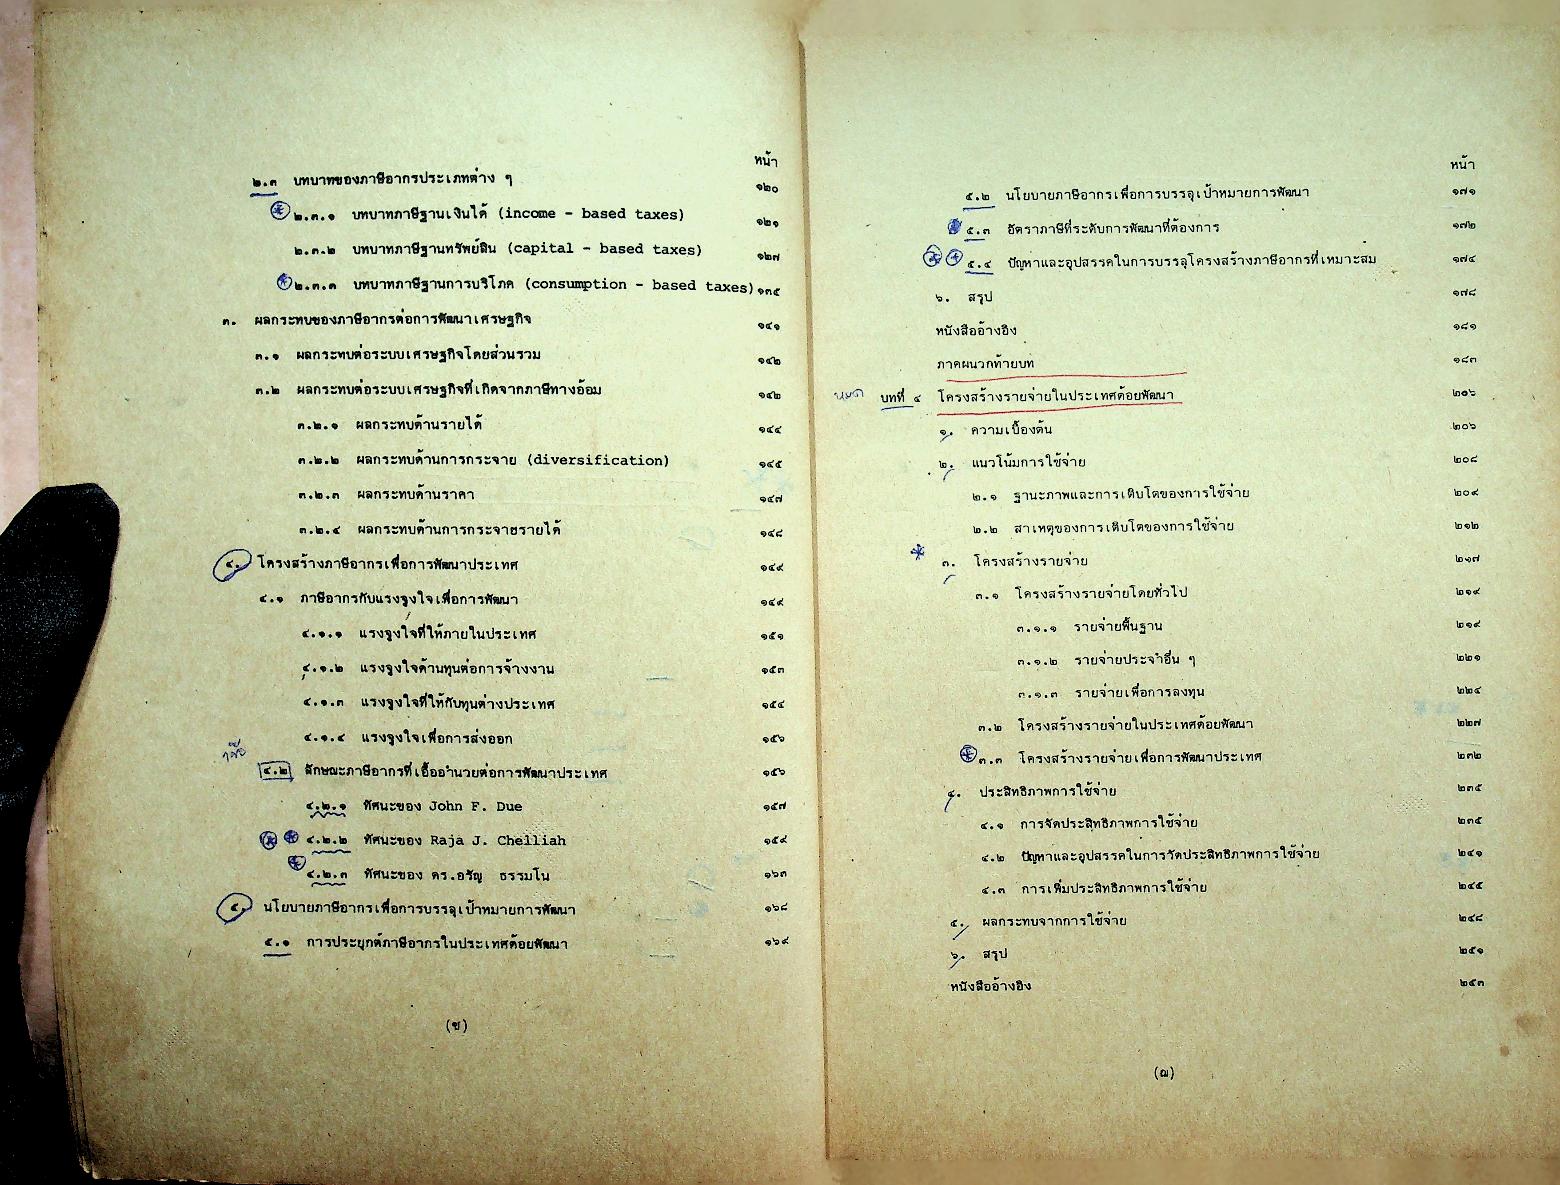 หน้า
๒.๓ บทบาทของภาษีอากรประเภทต่าง ๆ ๑๒๐
๒.๓.๑ บทบาทภาษีฐานเงินได้ (income - based taxes) ๑๒๑
๒.๓.๒ บทบาทภาษีฐานทรัพย์สิน (capital - based taxes) ๑๒๗
๒.๓.๓ บทบาทภาษีฐานการบริโภค (consumption - based taxes) ๑๓๕
๓. ผลกระทบของภาษีอากรต่อการพัฒนาเศรษฐกิจ ๑๔๑
๓.๑ ผลกระทบต่อระบบเศรษฐกิจโดยส่วนรวม ๑๔๒
๓.๒ ผลกระทบต่อระบบเศรษฐกิจที่เกิดจากภาษีทางอ้อม ๑๔๒
๓.๒.๑ ผลกระทบด้านรายได้ ๑๔๔
๓.๒.๒ ผลกระทบด้านการกระจาย (diversification) ๑๔๕
๓.๒.๓ ผลกระทบด้านราคา ๑๔๗
๓.๒.๔ ผลกระทบด้านการกระจายรายได้ ๑๔๘
๔. โครงสร้างภาษีอากรเพื่อการพัฒนาประเทศ ๑๔๙
๔.๑ ภาษีอากรกับแรงจูงใจเพื่อการพัฒนา ๑๔๙
๔.๑.๑ แรงจูงใจที่ให้ภายในประเทศ ๑๕๑
๔.๑.๒ แรงจูงใจด้านทุนต่อการจ้างงาน ๑๕๓
๔.๑.๓ แรงจูงใจที่ให้กับทุนต่างประเทศ ๑๕๔
๔.๑.๔ แรงจูงใจเพื่อการส่งออก ๑๕๖
๔.๒ ลักษณะภาษีอากรที่เอื้ออำนวยต่อการพัฒนาประเทศ ๑๕๖
๔.๒.๑ ทัศนะของ John F. Due ๑๕๗
๔.๒.๒ ทัศนะของ Raja J. Chelliah ๑๕๙
๔.๒.๓ ทัศนะของ ดร.อรัญ ธรรมโน ๑๖๓
๕. นโยบายภาษีอากรเพื่อการบรรลุเป้าหมายการพัฒนา ๑๖๘
๕.๑ การประยุกต์ภาษีอากรในประเทศด้อยพัฒนา ๑๖๙
(ช)
หน้า
๕.๒ นโยบายภาษีอากรเพื่อการบรรลุเป้าหมายการพัฒนา ๑๗๑
๕.๓ อัตราภาษีที่ระดับการพัฒนาที่ต้องการ ๑๗๒
๕.๔ ปัญหาและอุปสรรคในการบรรลุโครงสร้างภาษีอากรที่เหมาะสม ๑๗๔
๖. สรุป ๑๗๘
หนังสืออ้างอิง ๑๘๑
ภาคผนวกท้ายบท ๑๘๓
บทที่ ๔ โครงสร้างรายจ่ายในประเทศด้อยพัฒนา ๒๐๖
๑. ความเบื้องต้น ๒๐๖
๒. แนวโน้มการใช้จ่าย ๒๐๘
๒.๑ ฐานะภาพและการเติบโตของการใช้จ่าย ๒๐๙
๒.๒ สาเหตุของการเติบโตของการใช้จ่าย ๒๑๒
๓. โครงสร้างรายจ่าย ๒๑๗
๓.๑ โครงสร้างรายจ่ายโดยทั่วไป ๒๑๙
๓.๑.๑ รายจ่ายพื้นฐาน ๒๑๙
๓.๑.๒ รายจ่ายประจำอื่น ๆ ๒๒๑
๓.๑.๓ รายจ่ายเพื่อการลงทุน ๒๒๔
๓.๒ โครงสร้างรายจ่ายในประเทศด้อยพัฒนา ๒๒๗
๓.๓ โครงสร้างรายจ่ายเพื่อการพัฒนาประเทศ ๒๓๒
๔. ประสิทธิภาพการใช้จ่าย ๒๓๕
๔.๑ การจัดประสิทธิภาพการใช้จ่าย ๒๓๕
๔.๒ ปัญหาและอุปสรรคในการวัดประสิทธิภาพการใช้จ่าย ๒๔๑
๔.๓ การเพิ่มประสิทธิภาพการใช้จ่าย ๒๔๕
๕. ผลกระทบจากการใช้จ่าย ๒๔๘
๖. สรุป ๒๕๑
หนังสืออ้างอิง ๒๕๓
(ฌ)